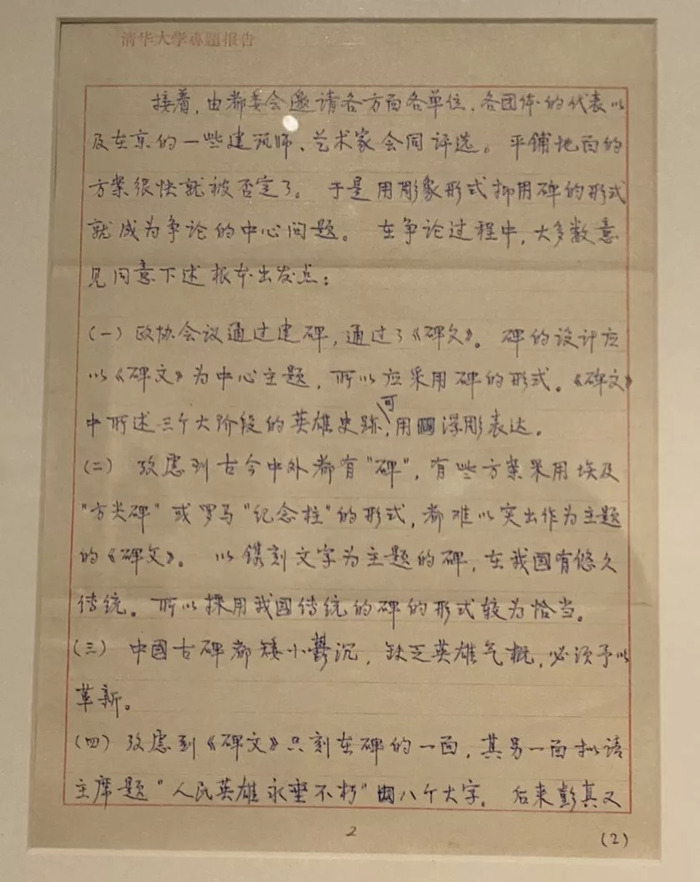 清华大学專題报告
接着，由都委会邀请各方面各单位、各团体的代表以
及在京的一些建筑师、艺术家会同评选。平铺地面的
方案很快就被否定了。于是用彫象形式抑用碑的形式
就成为争论的中心问题。在争论过程中，大多数意
见同意下述根本出发点：
(一) 政协会议通过建碑，通过了《碑文》。碑的设计应
以《碑文》为中心主题，所以应采用碑的形式。《碑文》
中所述三个大阶段的英雄史跡，可用浮彫表达。
(二) 考虑到古今中外都有"碑"，有些方案采用埃及
"方尖碑"或罗马"纪念柱"的形式，都难以突出作为主题
的《碑文》。以鐫刻文字为主题的碑，在我國有悠久
传统。所以採用我國传统的碑的形式较为恰当。
(三) 中國古碑都矮小鬱沉，缺乏英雄气概，必须予以
革新。
(四) 考虑到《碑文》只刻在碑的一面，其另一面拟请
主席题"人民英雄永垂不朽"八个大字。后来彭真又
2
(2)